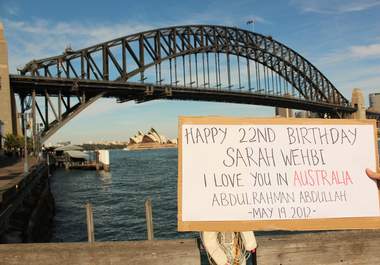 HAPPY 22ND BIRTHDAY
SARAH WEHBI
I LOVE YOU IN AUSTRALIA
ABDULRAHMAN ABDULLAH
-MAY 19 2012-